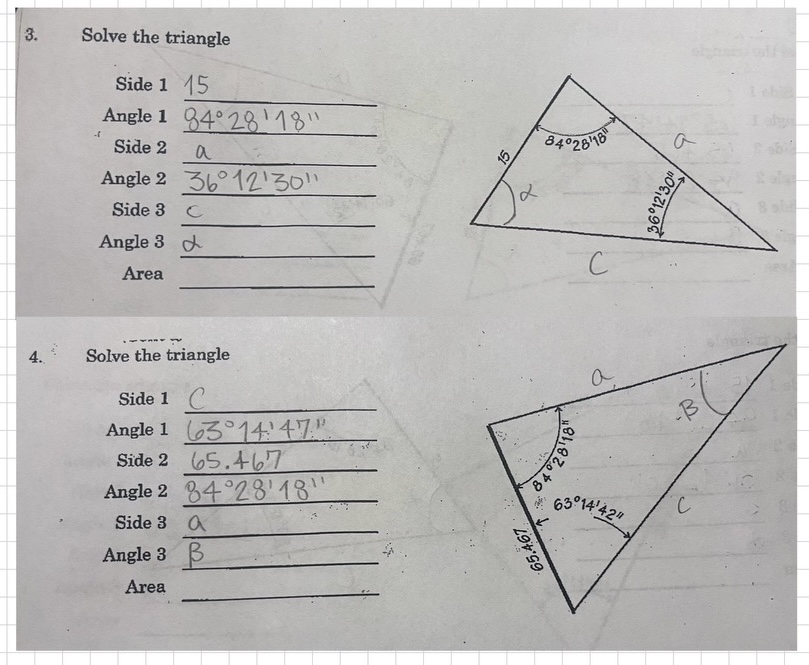 3. Solve the triangle
Side 1 15
Angle 1 84°28'18"
Side 2 a
Angle 2 36°12'30"
Side 3 c
Angle 3 α
Area
84°28'18"
a
15
α
36°12'30"
C
4. Solve the triangle
Side 1 C
Angle 1 63°14'47"
Side 2 65.467
Angle 2 84°28'18"
Side 3 a
Angle 3 β
Area
a
β
84°28'18"
63°14'42"
c
65.467